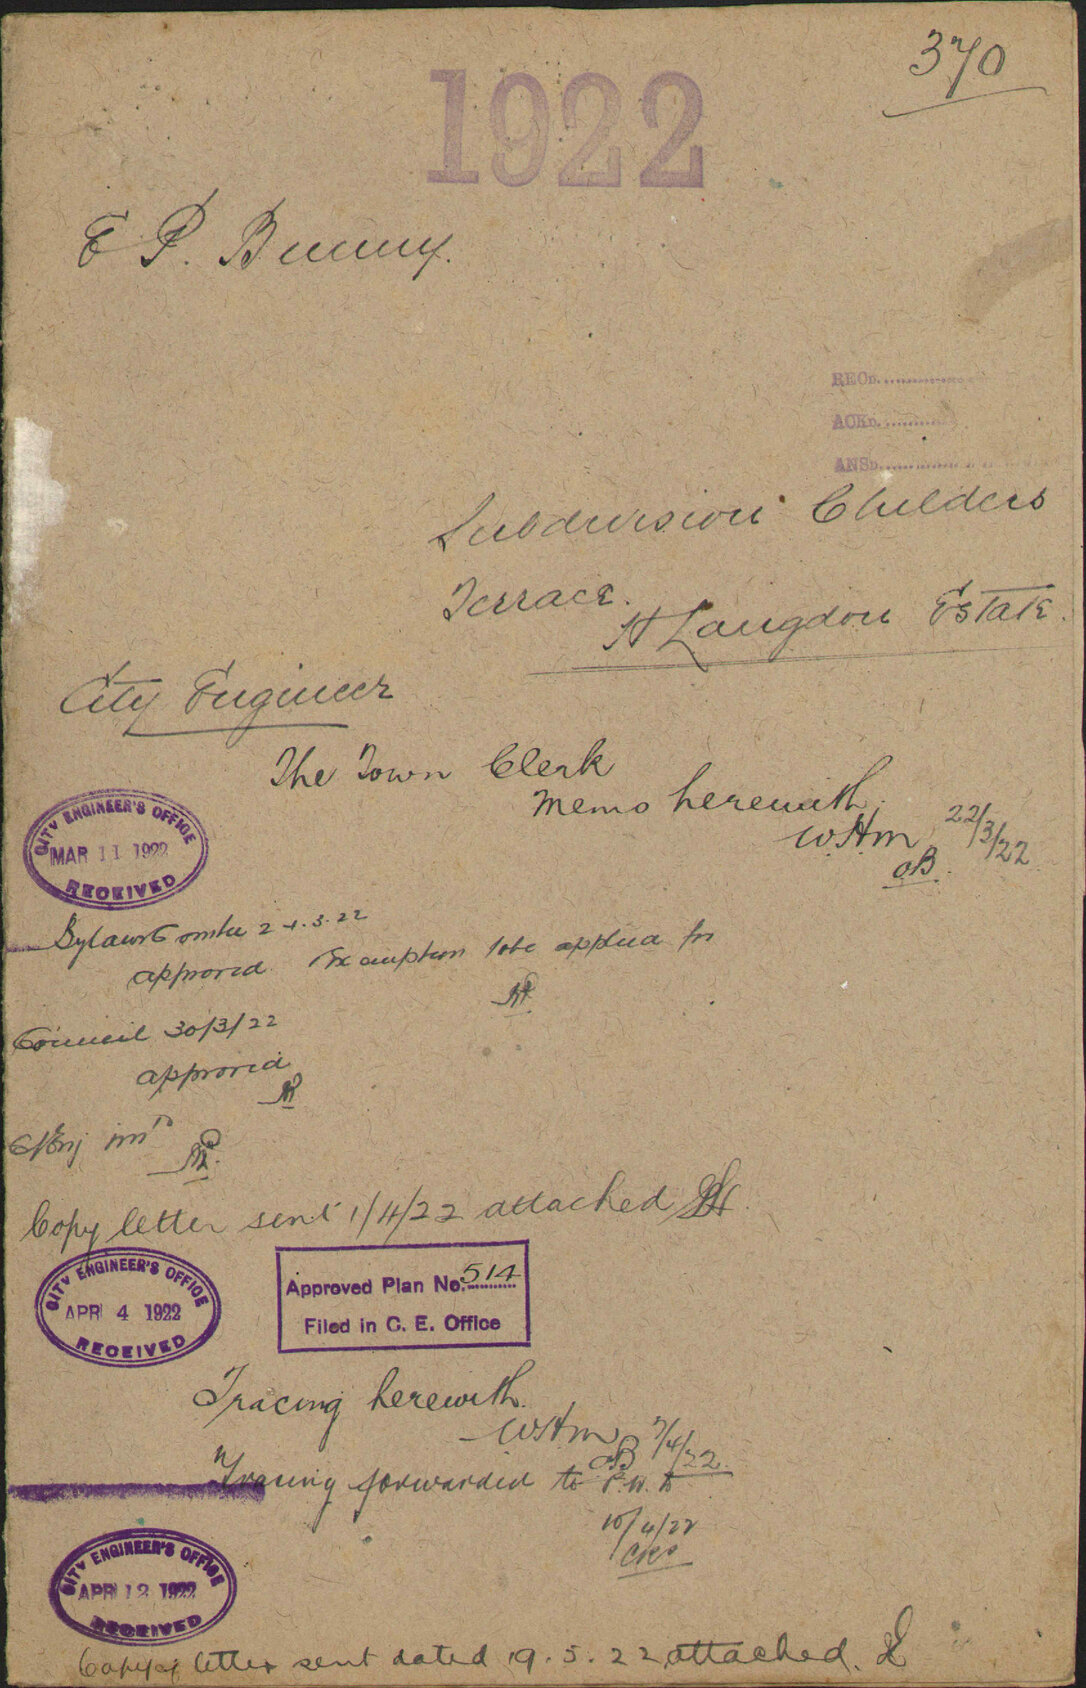 370
1922
E P. Bunny.
RECD.
ACKD.
ANSD.
Subdivision Childers
Terrace.
H Langdon Estate.
City Engineer
The Town Clerk
Memo herewith.
W.H.M 22/3/22
OB.
CITY ENGINEER'S OFFICE
MAR 11 1922
RECEIVED
Bylaws Comtee 24.3.22
approved Exemption to be applied for
Council 30/3/22
approved
C/Eng
Copy letter sent 1/4/22 attached
CITY ENGINEER'S OFFICE
APR 4 1922
RECEIVED
Approved Plan No. 514
Filed in C. E. Office
Tracing herewith.
WHM 7/4/22
OB
Tracing forwarded to P.W.D
10/4/22
CITY ENGINEER'S OFFICE
APR 12 1922
RECEIVED
Copy of letter sent dated 19.5.22 attached.